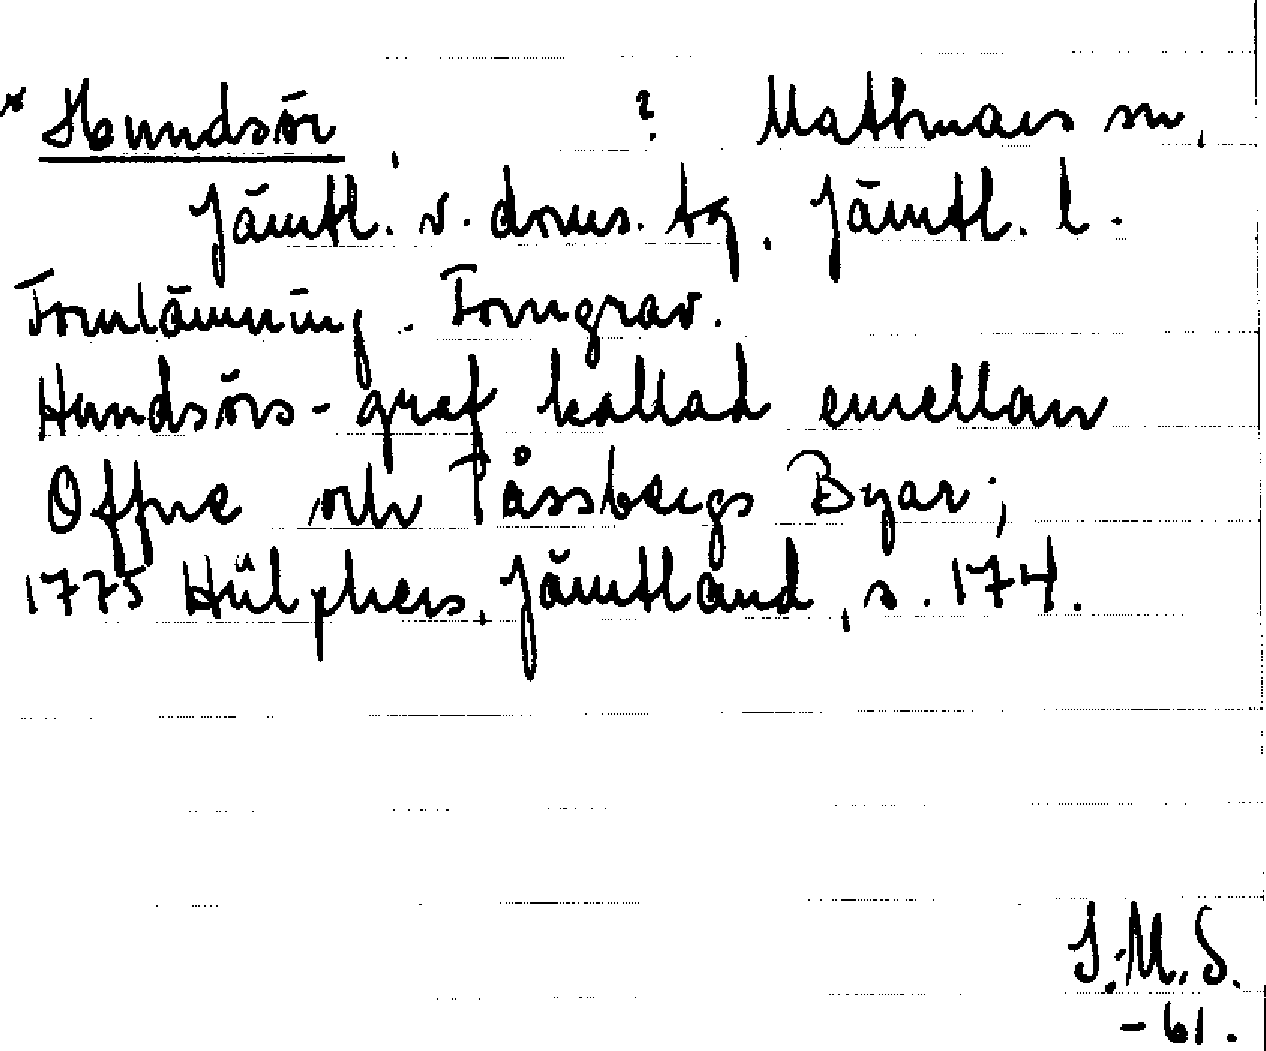 * Hundsör, ? Mattmars sn,
Jämtl. v. doms. tg. Jämtl. l.
Fornlämning. Forngrav.
Hundsörs-graf kallad emellan
Offne och Påssbergs Byar;
1775 Hülphers, Jämtland, s. 174.
S.M.S.
-61.